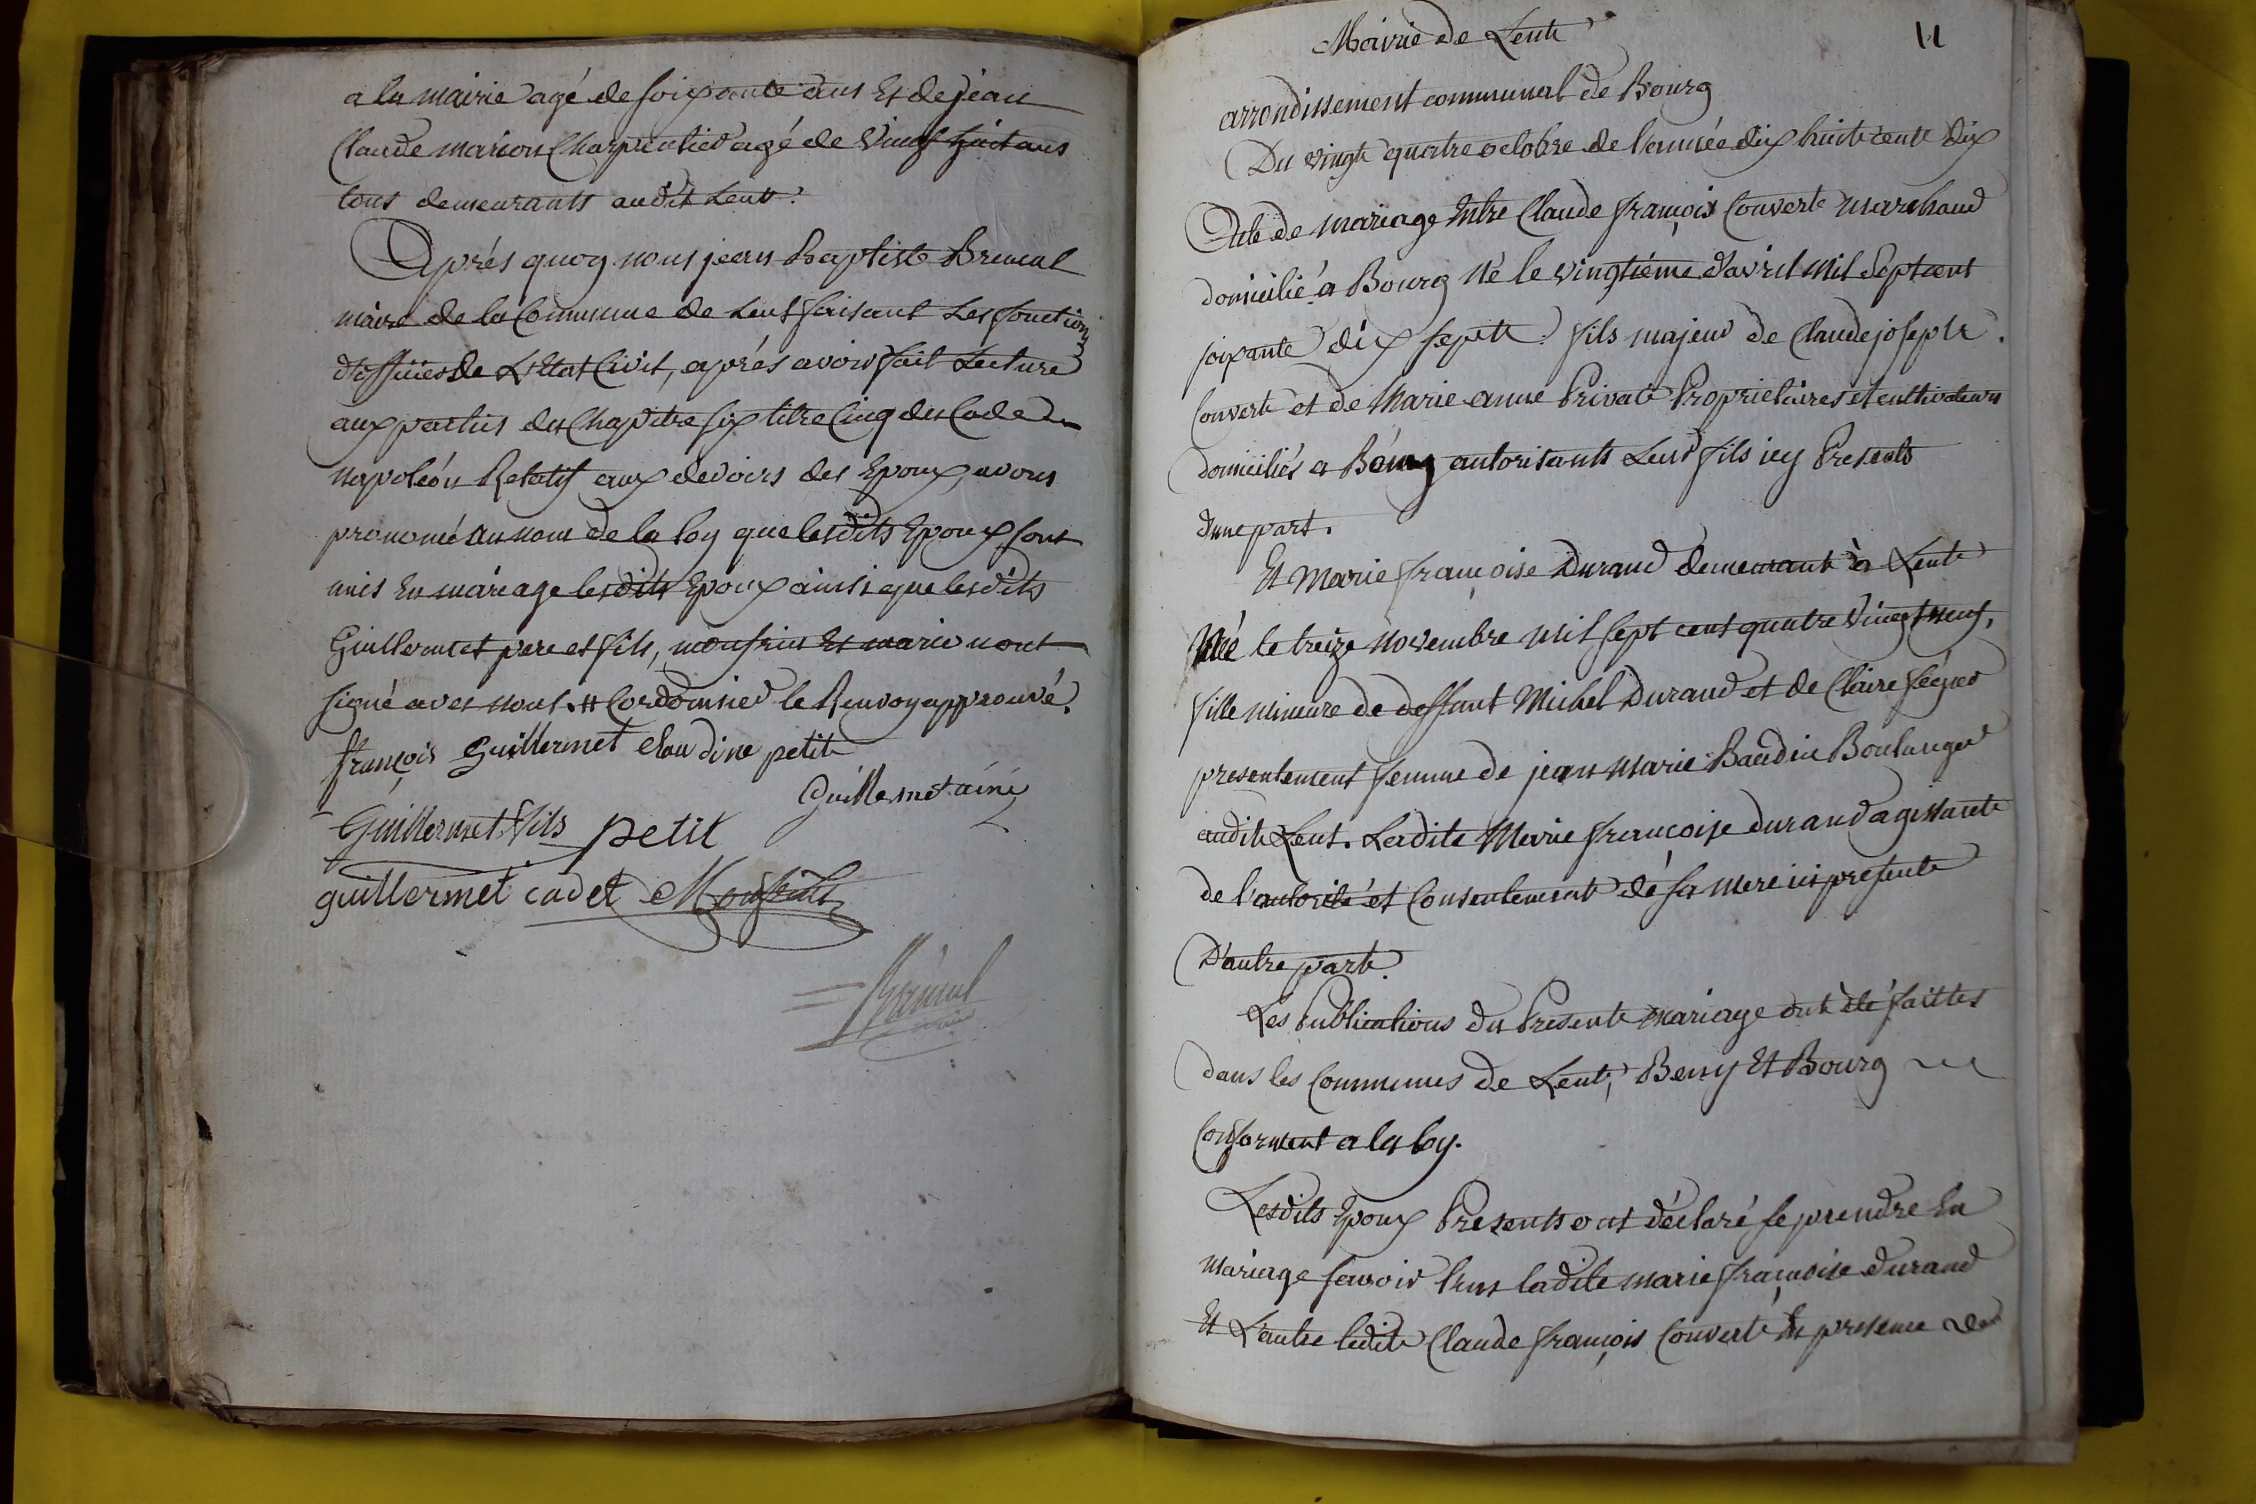 a la mairie agé de soixante ans Et de jean
Claude marion Charpentier agé de vingt huit ans
tous demeurants audit Lent.
Après quoy nous jean Baptiste Brunal
maire de la Commune de Lent faisant Les fonctions
d'officier de L'Etat Civil, aprés avoir fait Lecture
aux parties du Chapitre six titre Cinq du Code
napoléon Relatif aux devoirs des Epoux, avons
prononcé au nom de la loy que lesdits Epoux sont
unis En mariage lesdits Epoux ainsi que lesdits
Guillermet pere et fils, et marion ont
signé avec nous. # Cordonnier le Renvoy approuvé.
françois Guillermet claudine petit
Guillermet ainé
Guillermet fils petit
guillermet cadet
Mairie de Lent 11
arrondissement communal de Bourg
Du vingt quatre octobre de l'année dix huit cent dix
Acte de mariage Entre Claude françois Convert marchand
domicilié a Bourg Né le vingtiéme d'avril mil Sept cent
soixante dix sept. fils majeur de Claude joseph
Convert et de Marie anne Privat Proprietaires et cultivateurs
domiciliés a Bény autorisants Leur fils icy Presents
d'une part.
Et Marie françoise Durand demeurant à Lent
Née le treize novembre mil sept cent quatre vingt neuf,
fille mineure de deffunt Michel Durand et de Claire
presentement femme de jean Marie Baudin Boulanger
audit Lent. Ladite Marie françoise durand agissante
de l'autorité et Consentement dé sa mere ici presente
D'autre part.
Les Publications du Present mariage ont été faittes
dans les Communes de Lent, Beny Et Bourg
Conforment a la loy.
Lesdits Epoux Presents ont déclaré se prendre En
Mariage savoir l'un ladite marie françoise durand
Et L'autre ledit Claude françois Convert En presence de